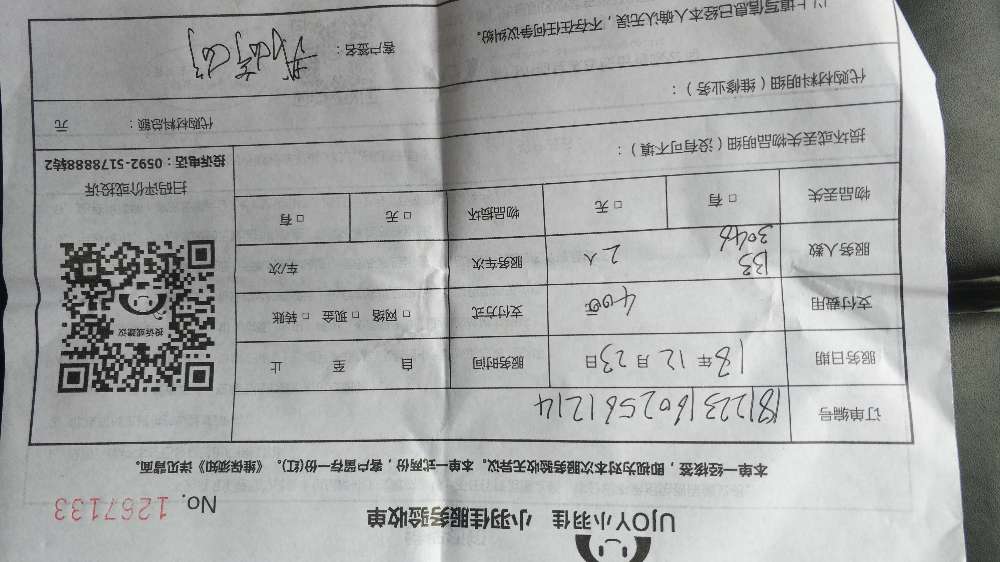 UJOY小羽佳 小羽佳服务验收单
No. 1267133
本单一经接签,即视为对本次服务验收无异议。本单一式两份,客户留存一份(红)。《维保须知》详见背面。
订单编号 1812231602561214
服务日期 18年12月23日 服务时间 自 至 止
支付费用 400元 支付方式 □网络 □现金 □转账
133
3046
服务人数 2人 服务车次 车/次
物品丢失 □有 □无 物品损坏 □无 □有
投诉或建议
扫码评价或投诉
投诉电话:0592-5178888转2
损坏或丢失物品明细(没有可不填):
代购材料明细(维修业务): 代购材料总额: 元
以上填写信息已经本人确认无误,不存在任何争议纠纷。 客户签名: